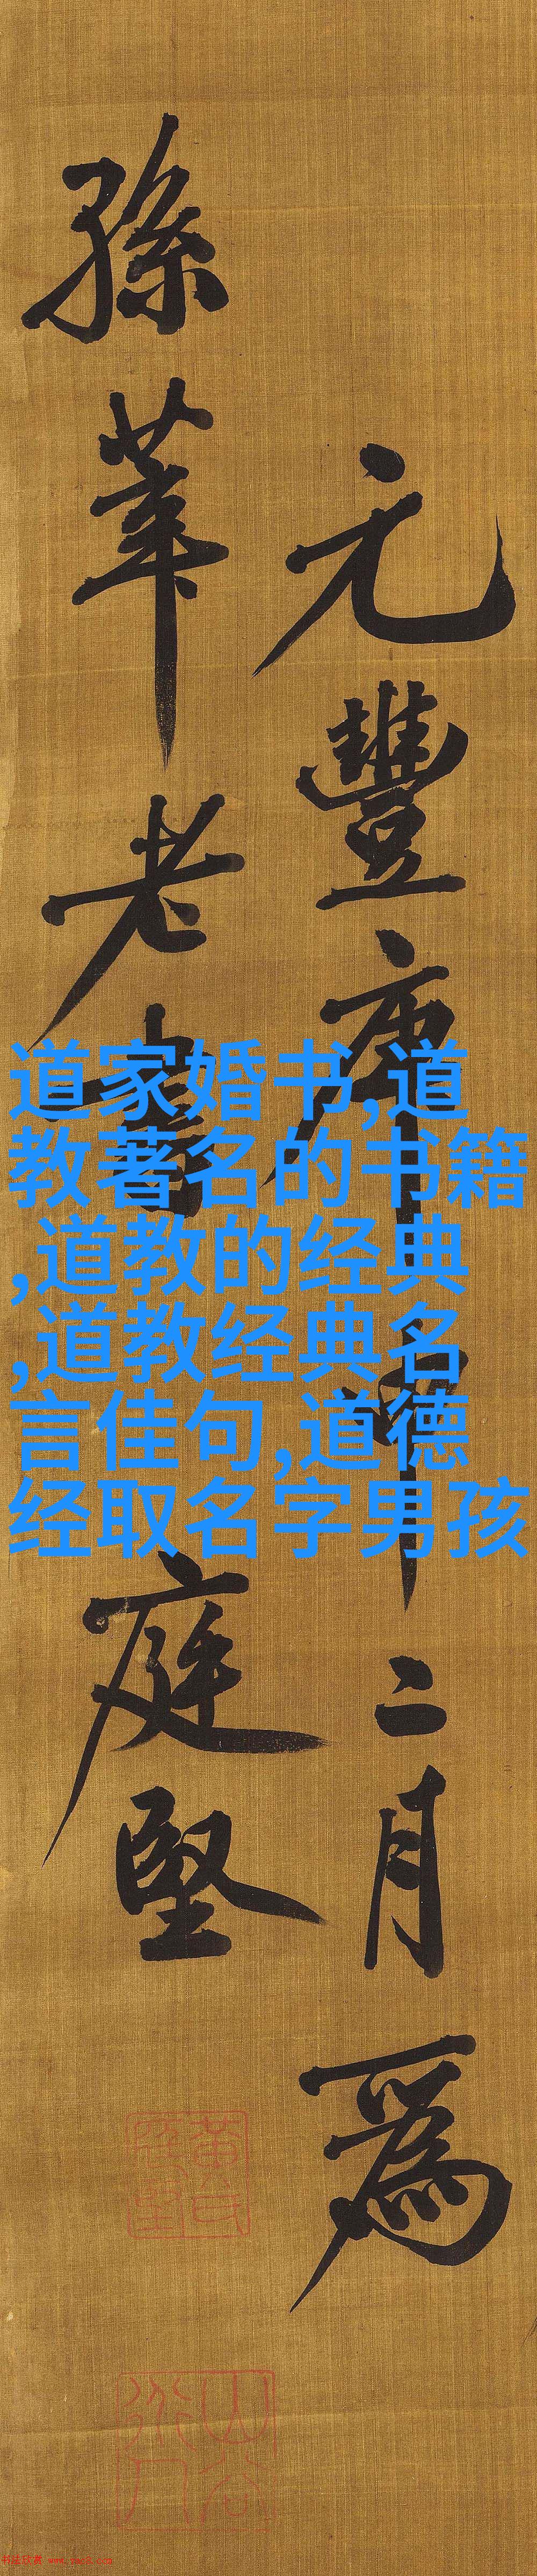 元豐庚申二月爲
孫莘老書
庭堅
道家婚书,道
教著名的书籍
,道教的经典
,道教经典名
言佳句,道德
经取名字男孩
黃氏
庭堅
山谷